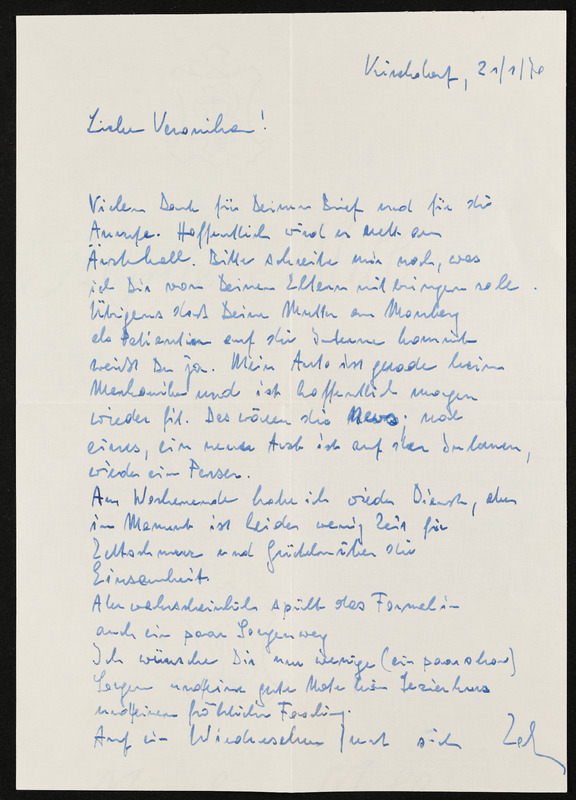 Kirchdorf, 21/1/70
Liebe Veronika!
Vielen Dank für Deinen Brief und für die
Anrufe. Hoffentlich wird es nett am
Ärzteball. Bitte schreibe mir noch, was
ich Dir von Deinen Eltern mitbringen soll.
Übrigens daß Deine Mutter am Montag
als Patientin auf die Interne kommt
weißt Du ja. Mein Auto ist gerade beim
Mechaniker und ist hoffentlich morgen
wieder fit. Das wären die News, noch
eines, ein neuer Arzt ist auf der Internen,
wieder ein Perser.
Am Wochenende habe ich wieder Dienst, aber
im Moment ist leider wenig Zeit für
und Grübeln über die
Einsamkeit.
Aber wahrscheinlich spült das Formalin
auch ein paar Sorgen weg
Ich wünsche Dir nur wenige (ein paar schon)
Sorgen und eine gute Note beim Sezierkurs
und einen fröhlichen Fasching.
Auf ein Wiedersehen freut sich